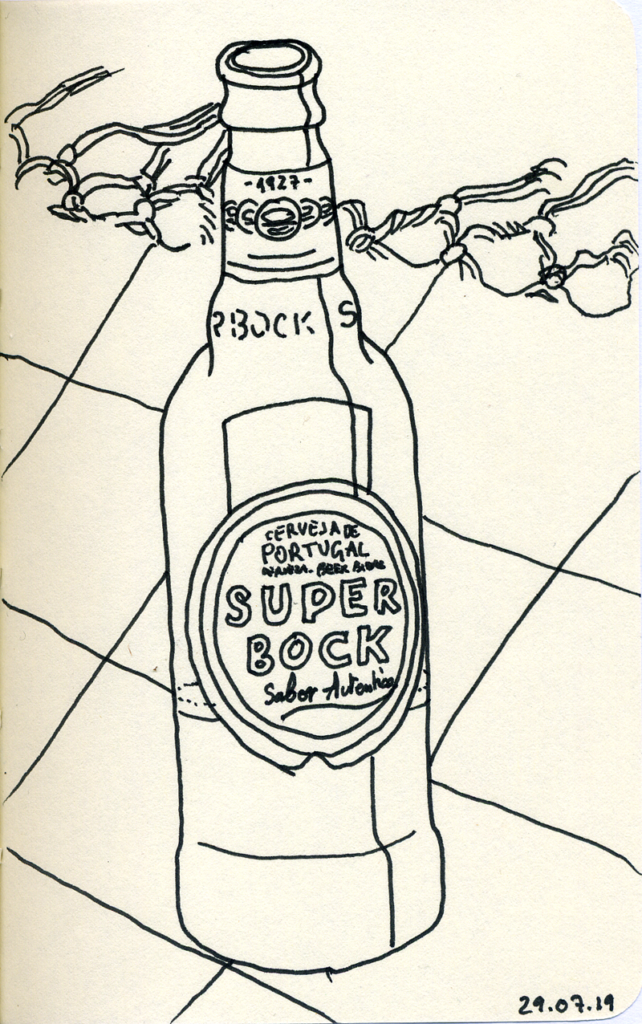 -1927-
PBOCK S
CERVEJA DE
PORTUGAL
BEER
SUPER
BOCK
Sabor Autentico
29.07.19